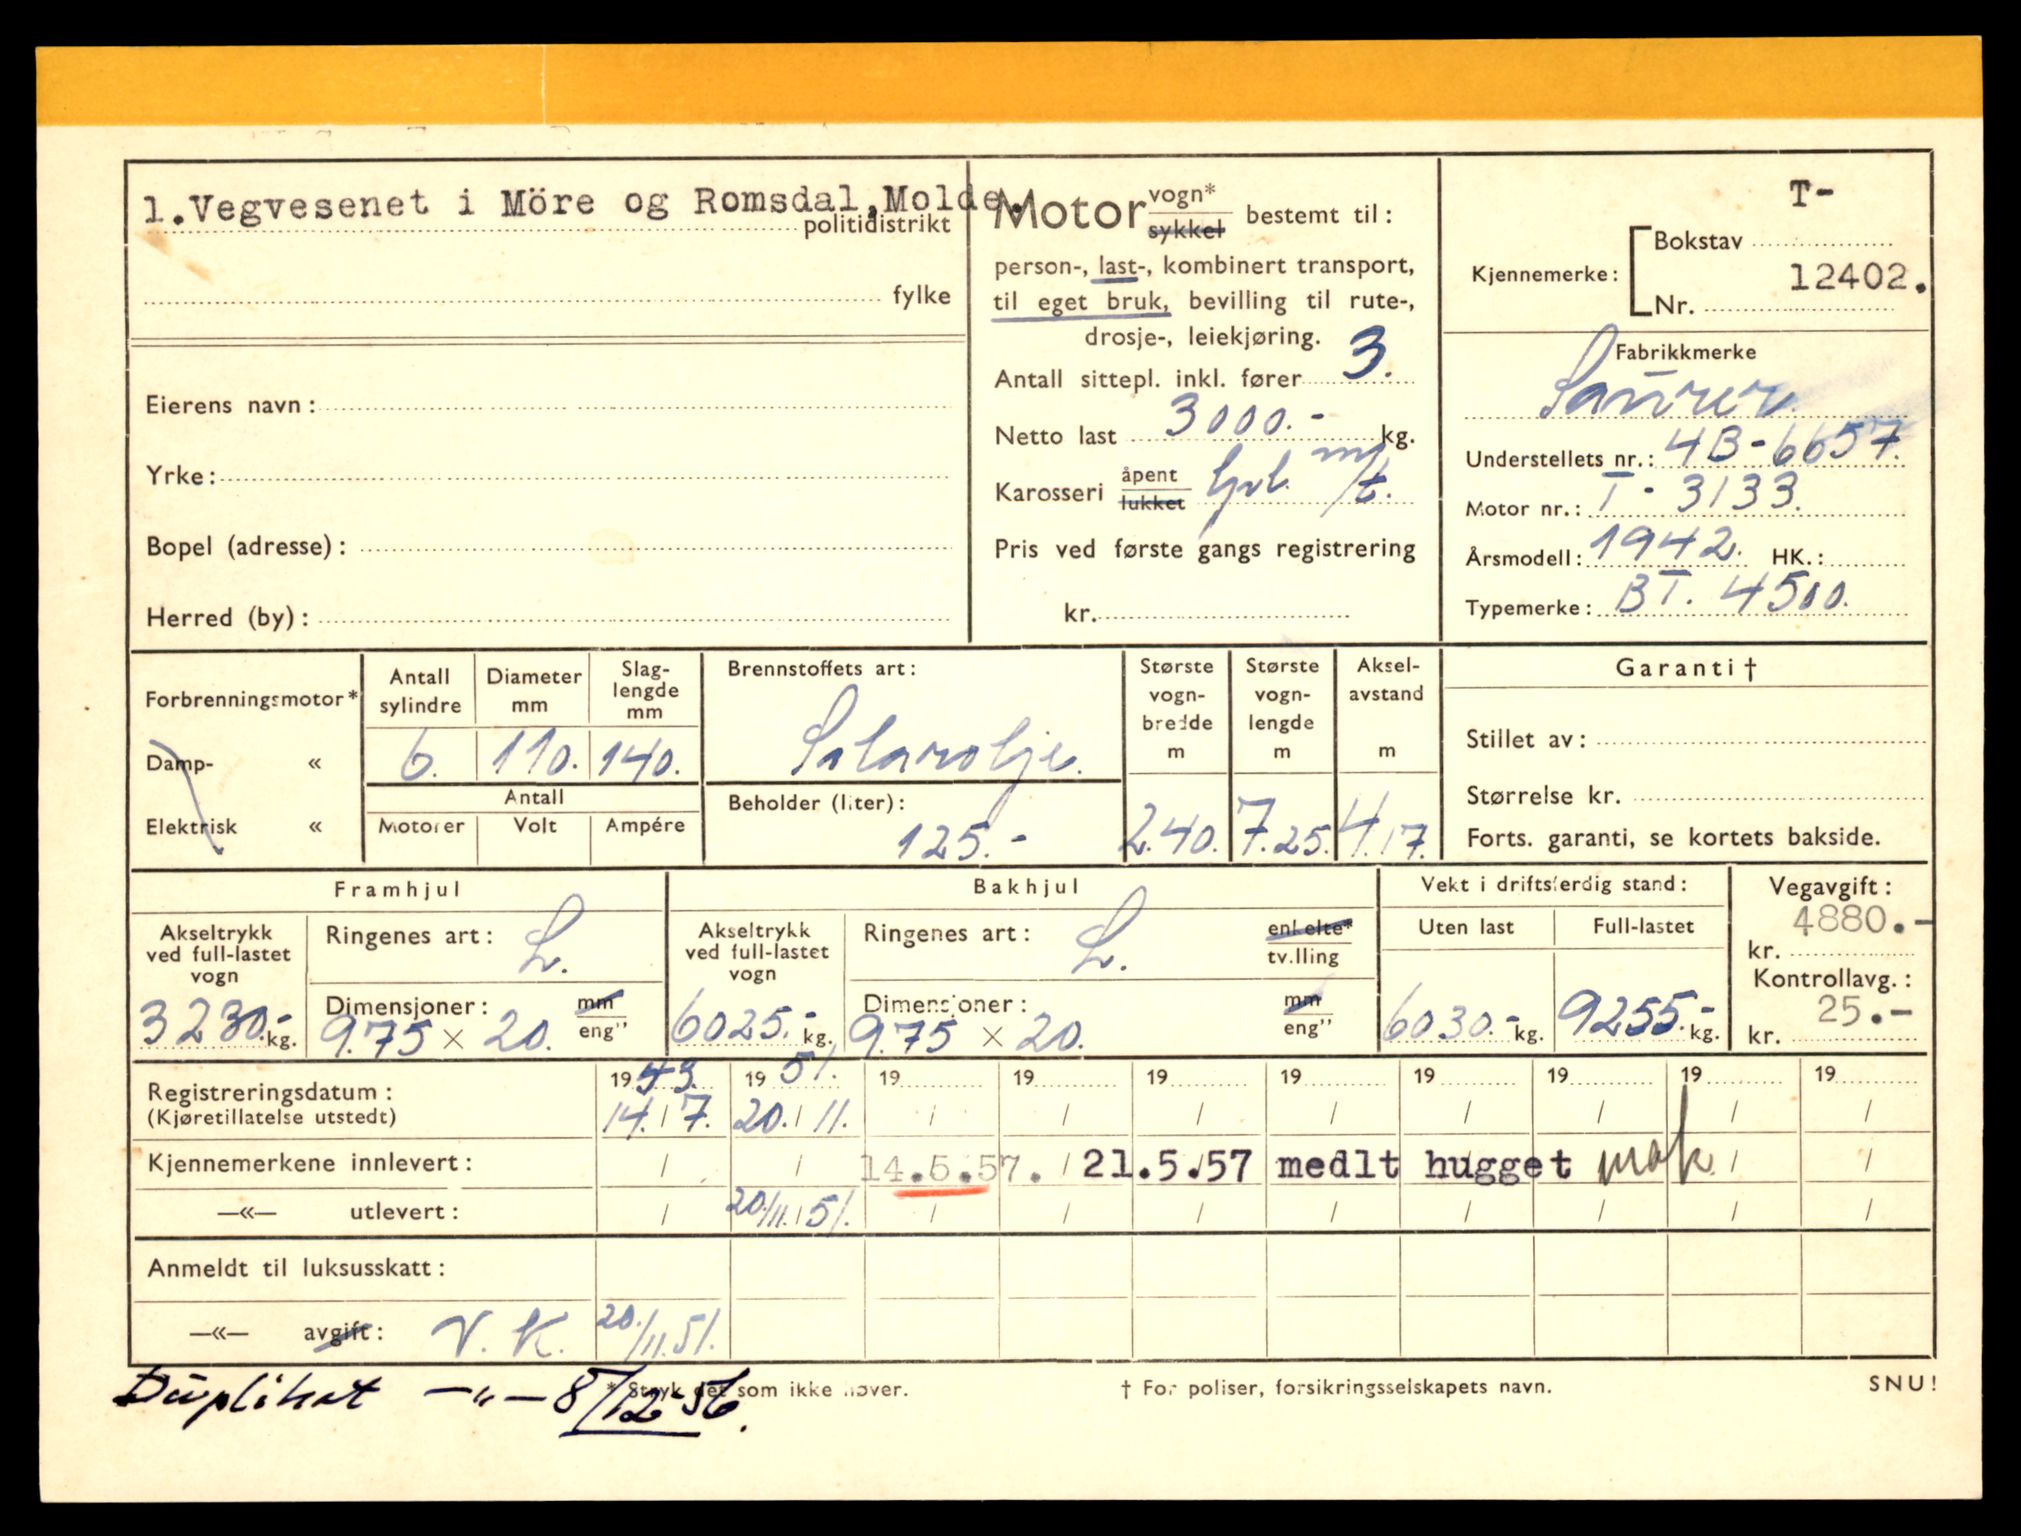 1.Vegvesenet i Möre og Romsdal,Molde.
politidistrikt
fylke
Eierens navn:
Yrke:
Bopel (adresse):
Herred (by):
Motor vogn* sykkel bestemt til:
person-, last-, kombinert transport,
til eget bruk, bevilling til rute-,
drosje-, leiekjøring.
Antall sittepl. inkl. fører 3.
Netto last 3000.- kg.
Karosseri åpent lukket m/t.
Pris ved første gangs registrering
kr.
T-
Kjennemerke: Bokstav
12402.
Nr.
Fabrikkmerke
Saurer
Understellets nr.: 4B-6657.
Motor nr.: T-3133.
Årsmodell: 1942. HK.:
Typemerke: BT. 4500.
Forbrenningsmotor*
Damp- «
Elektrisk «
Antall sylindre
6.
Diameter mm
110.
Slag-lengde mm
140.
Antall
Motorer Volt Ampére
Brennstoffets art:
Solarolje.
Beholder (liter):
125.-
Største vogn-bredde m
2.40.
Største vogn-lengde m
7.25.
Aksel-avstand m
4.17.
Garanti †
Stillet av:
Størrelse kr.
Forts. garanti, se kortets bakside.
Framhjul
Akseltrykk ved full-lastet vogn
3230.- kg.
Ringenes art: L.
Dimensjoner: mm
9.75 × 20. eng''
Bakhjul
Akseltrykk ved full-lastet vogn
6025.- kg.
Ringenes art: L. enkelte* tvilling
Dimensjoner: mm
9.75 × 20. eng''
Vekt i driftsferdig stand:
Uten last
6030.- kg.
Full-lastet
9255.- kg.
Vegavgift:
4880.-
kr.
Kontrollavg.:
25.-
kr.
Registreringsdatum: 1953. 1951. 19 19 19 19 19 19 19 19
(Kjøretillatelse utstedt) 14./7. 20./11. / / / / / / / /
Kjennemerkene innlevert: / / 14.5.57. 21.5.57 medlt hugget mak
—«— utlevert: / 20./11./51. / / / / / / / /
Anmeldt til luksusskatt:
—«— avgift: V.K. 20./11.51.
* Stryk det som ikke høver.
† For poliser, forsikringsselskapets navn.
SNU!
Duplikat —«— 8/12-56.